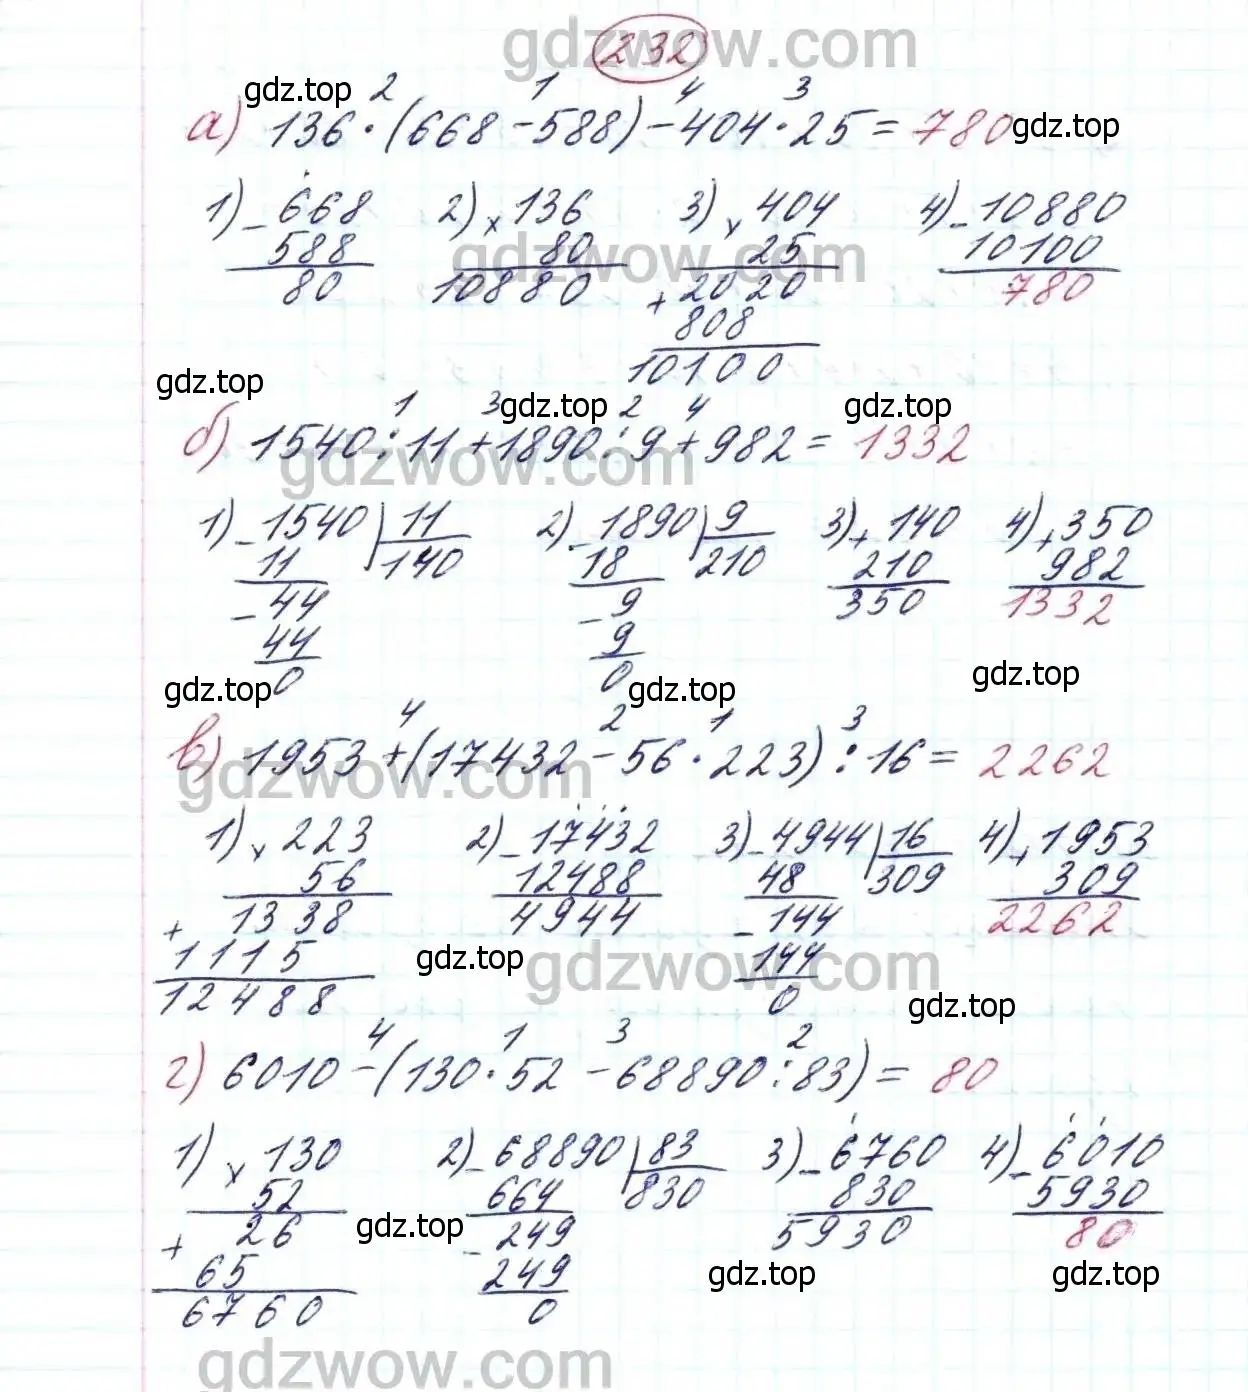 gdzwow.com
232
gdz.top 2 1 4 3
а) 136 · (668 - 588) - 404 · 25 = 780 gdz.top
1) - 668 2) × 136 3) × 404 4) - 10880
588 80 25 10100
gdzwow.com
80 10880 + 2020 780
808
10100
gdz.top
1 3 gdz.top 2 4 gdz.top
б) 1540 : 11 + 1890 : 9 + 982 = 1332
gdzwow.com
1) - 1540 | 11 2) - 1890 | 9 3) + 140 4) + 350
11 140 - 18 210 210 982
- 44 - 9 350 1332
44 9
gdz.top 0 0 gdz.top gdz.top
4 2 1 3
в) 1953 + (17432 - 56 · 223) : 16 = 2262
gdzwow.com
1) × 223 2) - 17432 3) - 4944 | 16 4) + 1953
56 12488 48 309 309
+ 1338 4944 - 144 2262
1115 gdz.top 144
gdzwow.com
12488 0 gdz.top
4 1 3 2
г) 6010 - (130 · 52 - 68890 : 83) = 80
1) × 130 2) - 68890 | 83 3) - 6760 4) - 6010
52 664 830 830 5930
+ 26 gdz.top - 249 5930 80
65 249 gdz.top gdz.top
6760 0
gdzwow.com